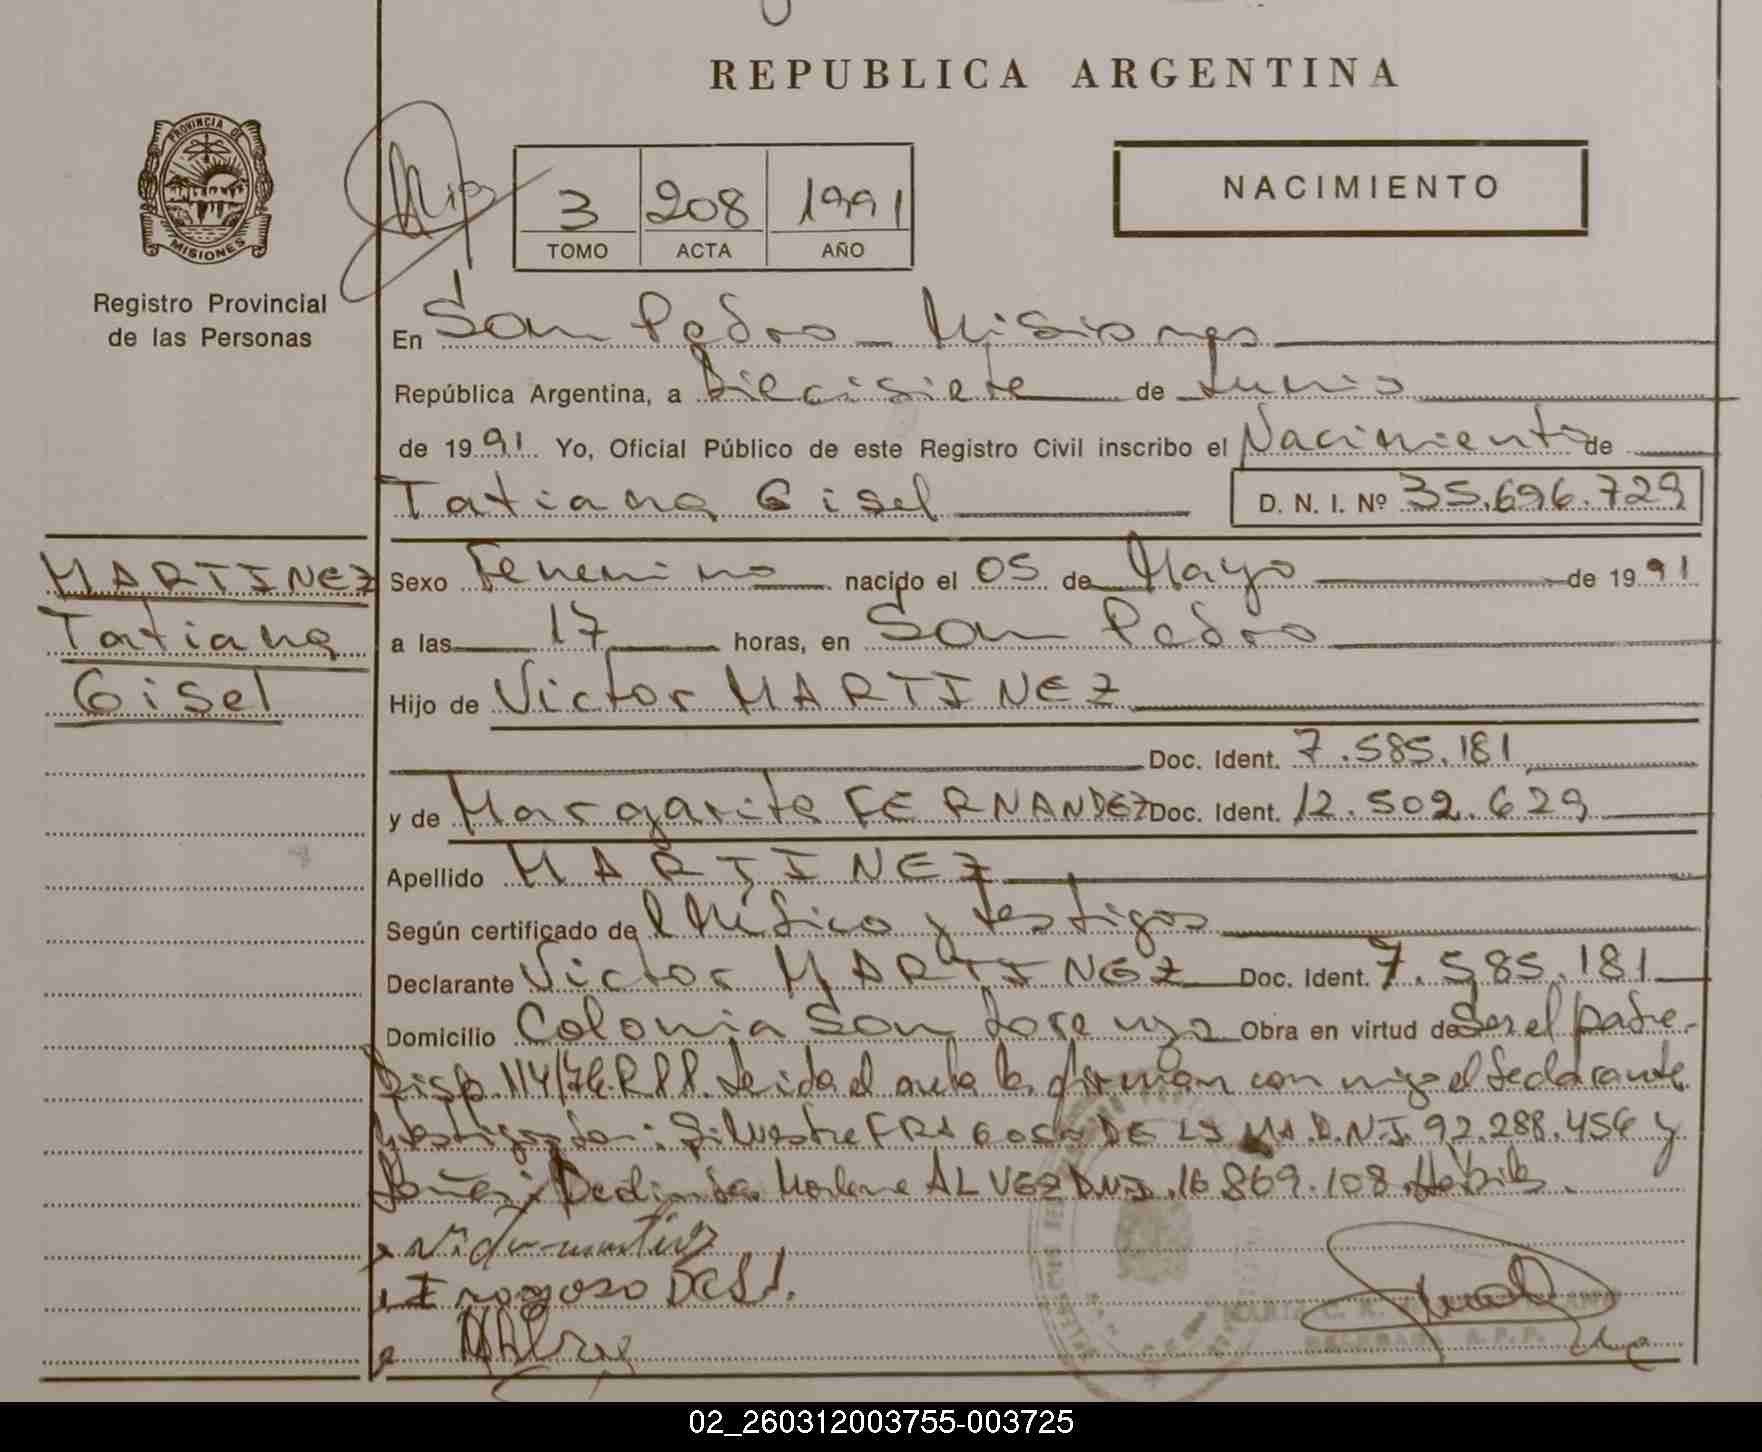 REPUBLICA ARGENTINA
PROVINCIA DE
MISIONES
Registro Provincial
de las Personas
3 208 1991
TOMO ACTA AÑO
NACIMIENTO
En San Pedro - Misiones
República Argentina, a Diecisiete de Junio
de 1991. Yo, Oficial Público de este Registro Civil inscribo el Nacimiento de
Tatiana Gisel D. N. I. Nº 35.696.729
MARTINEZ
Tatiana
Gisel
Sexo Femenino nacido el 05 de Mayo de 1991
a las 17 horas, en San Pedro
Hijo de Victor MARTINEZ
Doc. Ident. 7.585.181
y de Margarita FERNANDEZ Doc. Ident. 12.502.629
Apellido MARTINEZ
Según certificado de Médico y testigos
Declarante Victor MARTINEZ Doc. Ident. 7.585.181
Domicilio Colonia San Lorenzo Obra en virtud de Ser el padre.
Disp. 114/76.R.P.P. Leida el acta la firman con migo el declarante
y testigos Don: Silvestre FRAGOSO DE LIMA D.N.I. 92.288.456 y
Doña: Deolinda Marlene ALVEZ DNI. 16.869.108. Hábiles.
Fragoso
02_260312003755-003725